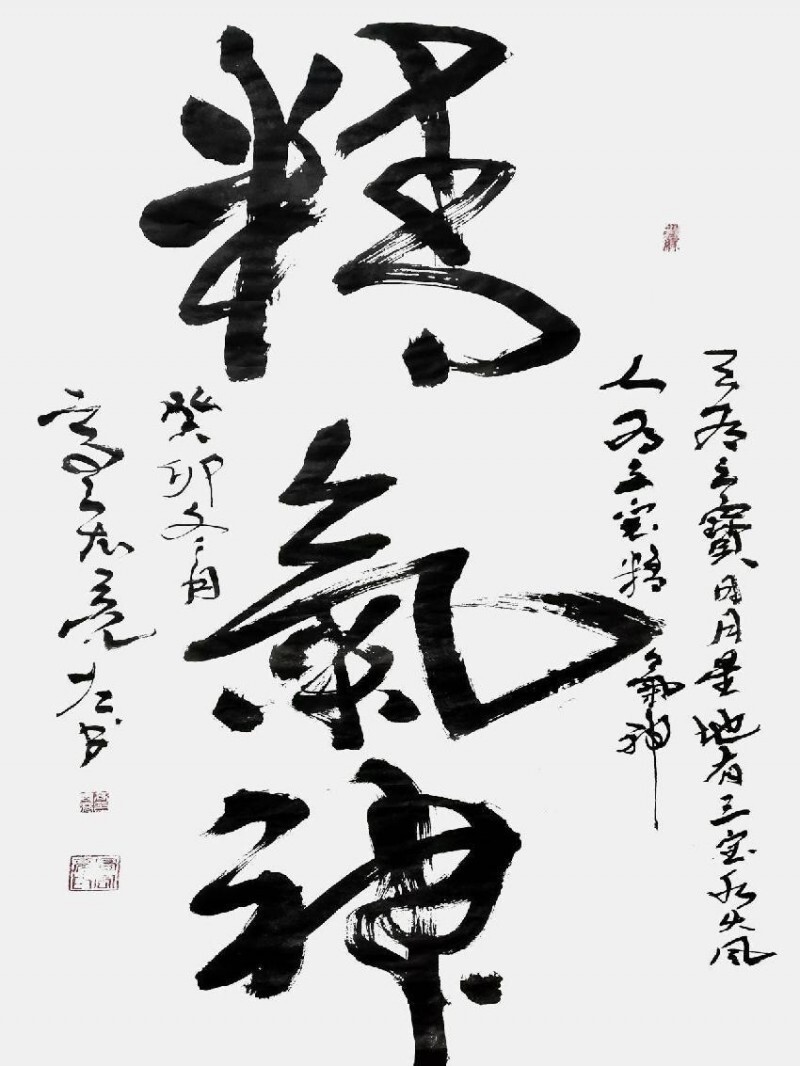 精氣神
天有三寶日月星地有三宝水火风
人有三宝精氣神
癸卯冬月